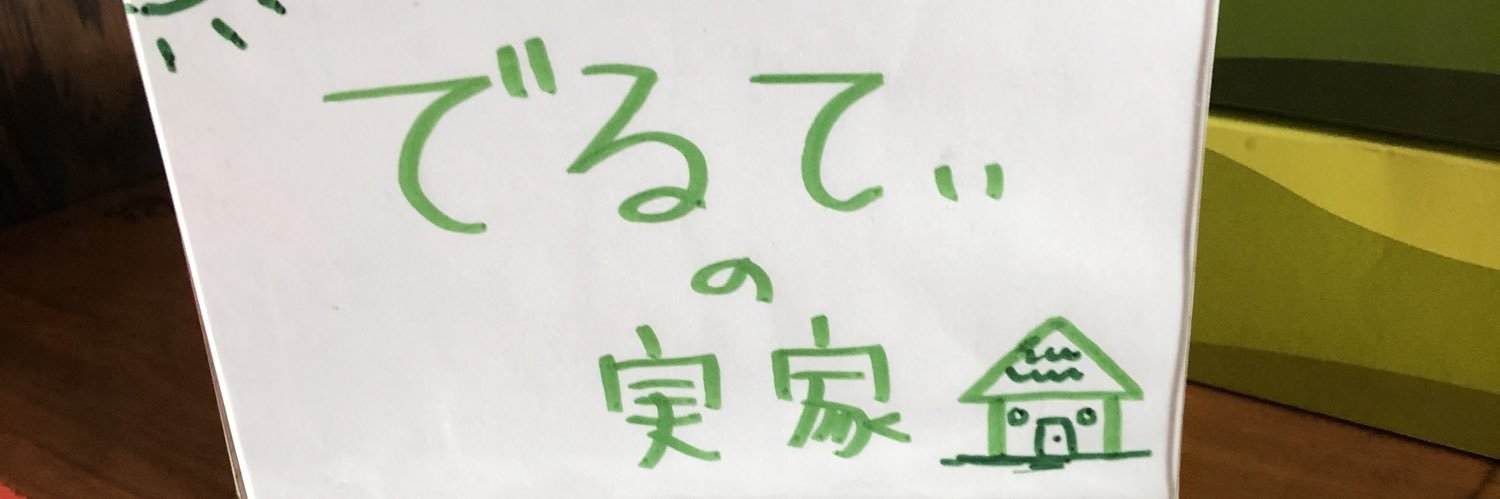 でるてぃ
の
実家